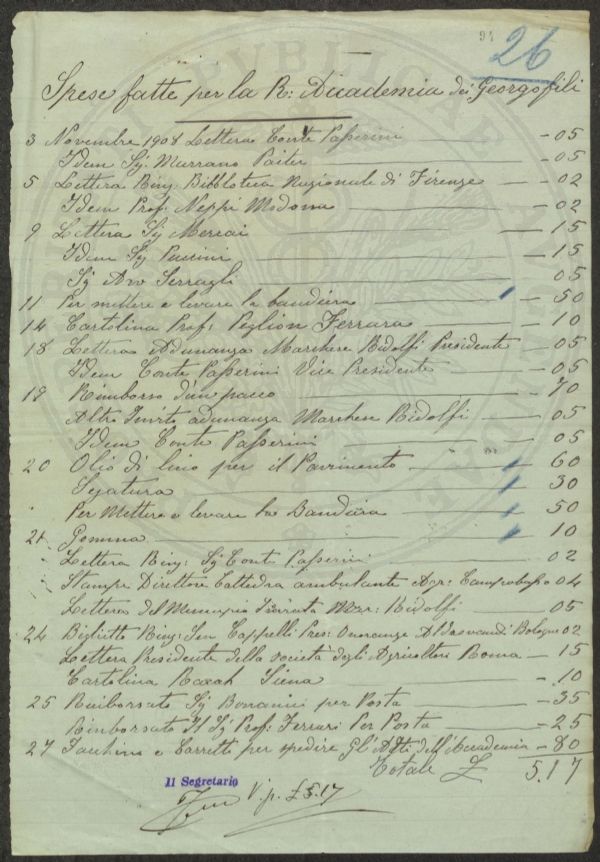 94 26
Spese fatte per la R: Accademia dei Georgofili
3 Novembre 1908 Lettera Conte Passerini — 05
Idem Sig. Marrano Paiter — 05
5 Lettera Ring: Biblioteca Nazionale di Firenze — 02
Idem Prof: Neppi Modona — 02
9 Lettera Sig Mercai — 15
Idem Sig Puccini — 15
Sig Avv Serragli 05
11 Per mettere e levare la bandiera — 50
14 Cartolina Prof: Peglion Ferrara — 10
18 Lettera Adunanza Marchese Ridolfi Presidente — 05
Idem Conte Passerini Vice Presidente — 05
19 Rimborso d'un pacco — 70
Altro Invito adunanza Marchese Ridolfi — 05
Idem Conte Passerini 05
20 Olio di lino per il Pavimento — 60
Segatura — 30
Per Mettere e levare la Bandiera — 50
21 Gomma — 10
Lettera Ring: Sig Conte Passerini — 02
Stampe Direttore Cattedra ambulante Agr: Campobasso 04
Lettera del Municipio Mar: Ridolfi — 05
24 Biglietto Ring: Sen Cappelli Pres: Onoranze Aldrovandi Bologna 02
Lettera Presidente della Società degli Agricoltori Roma — 15
Cartolina Siena — 10
25 Rimborsato Sig Bonanni per Posta — 35
Rimborsato Il Sig Prof: Ferrari Per Posta — 25
27 Facchino e Barretti per spedire Gl'Atti dell'Accademia — 80
Totale £ 5.17
Il Segretario
V. p. £ 5.17